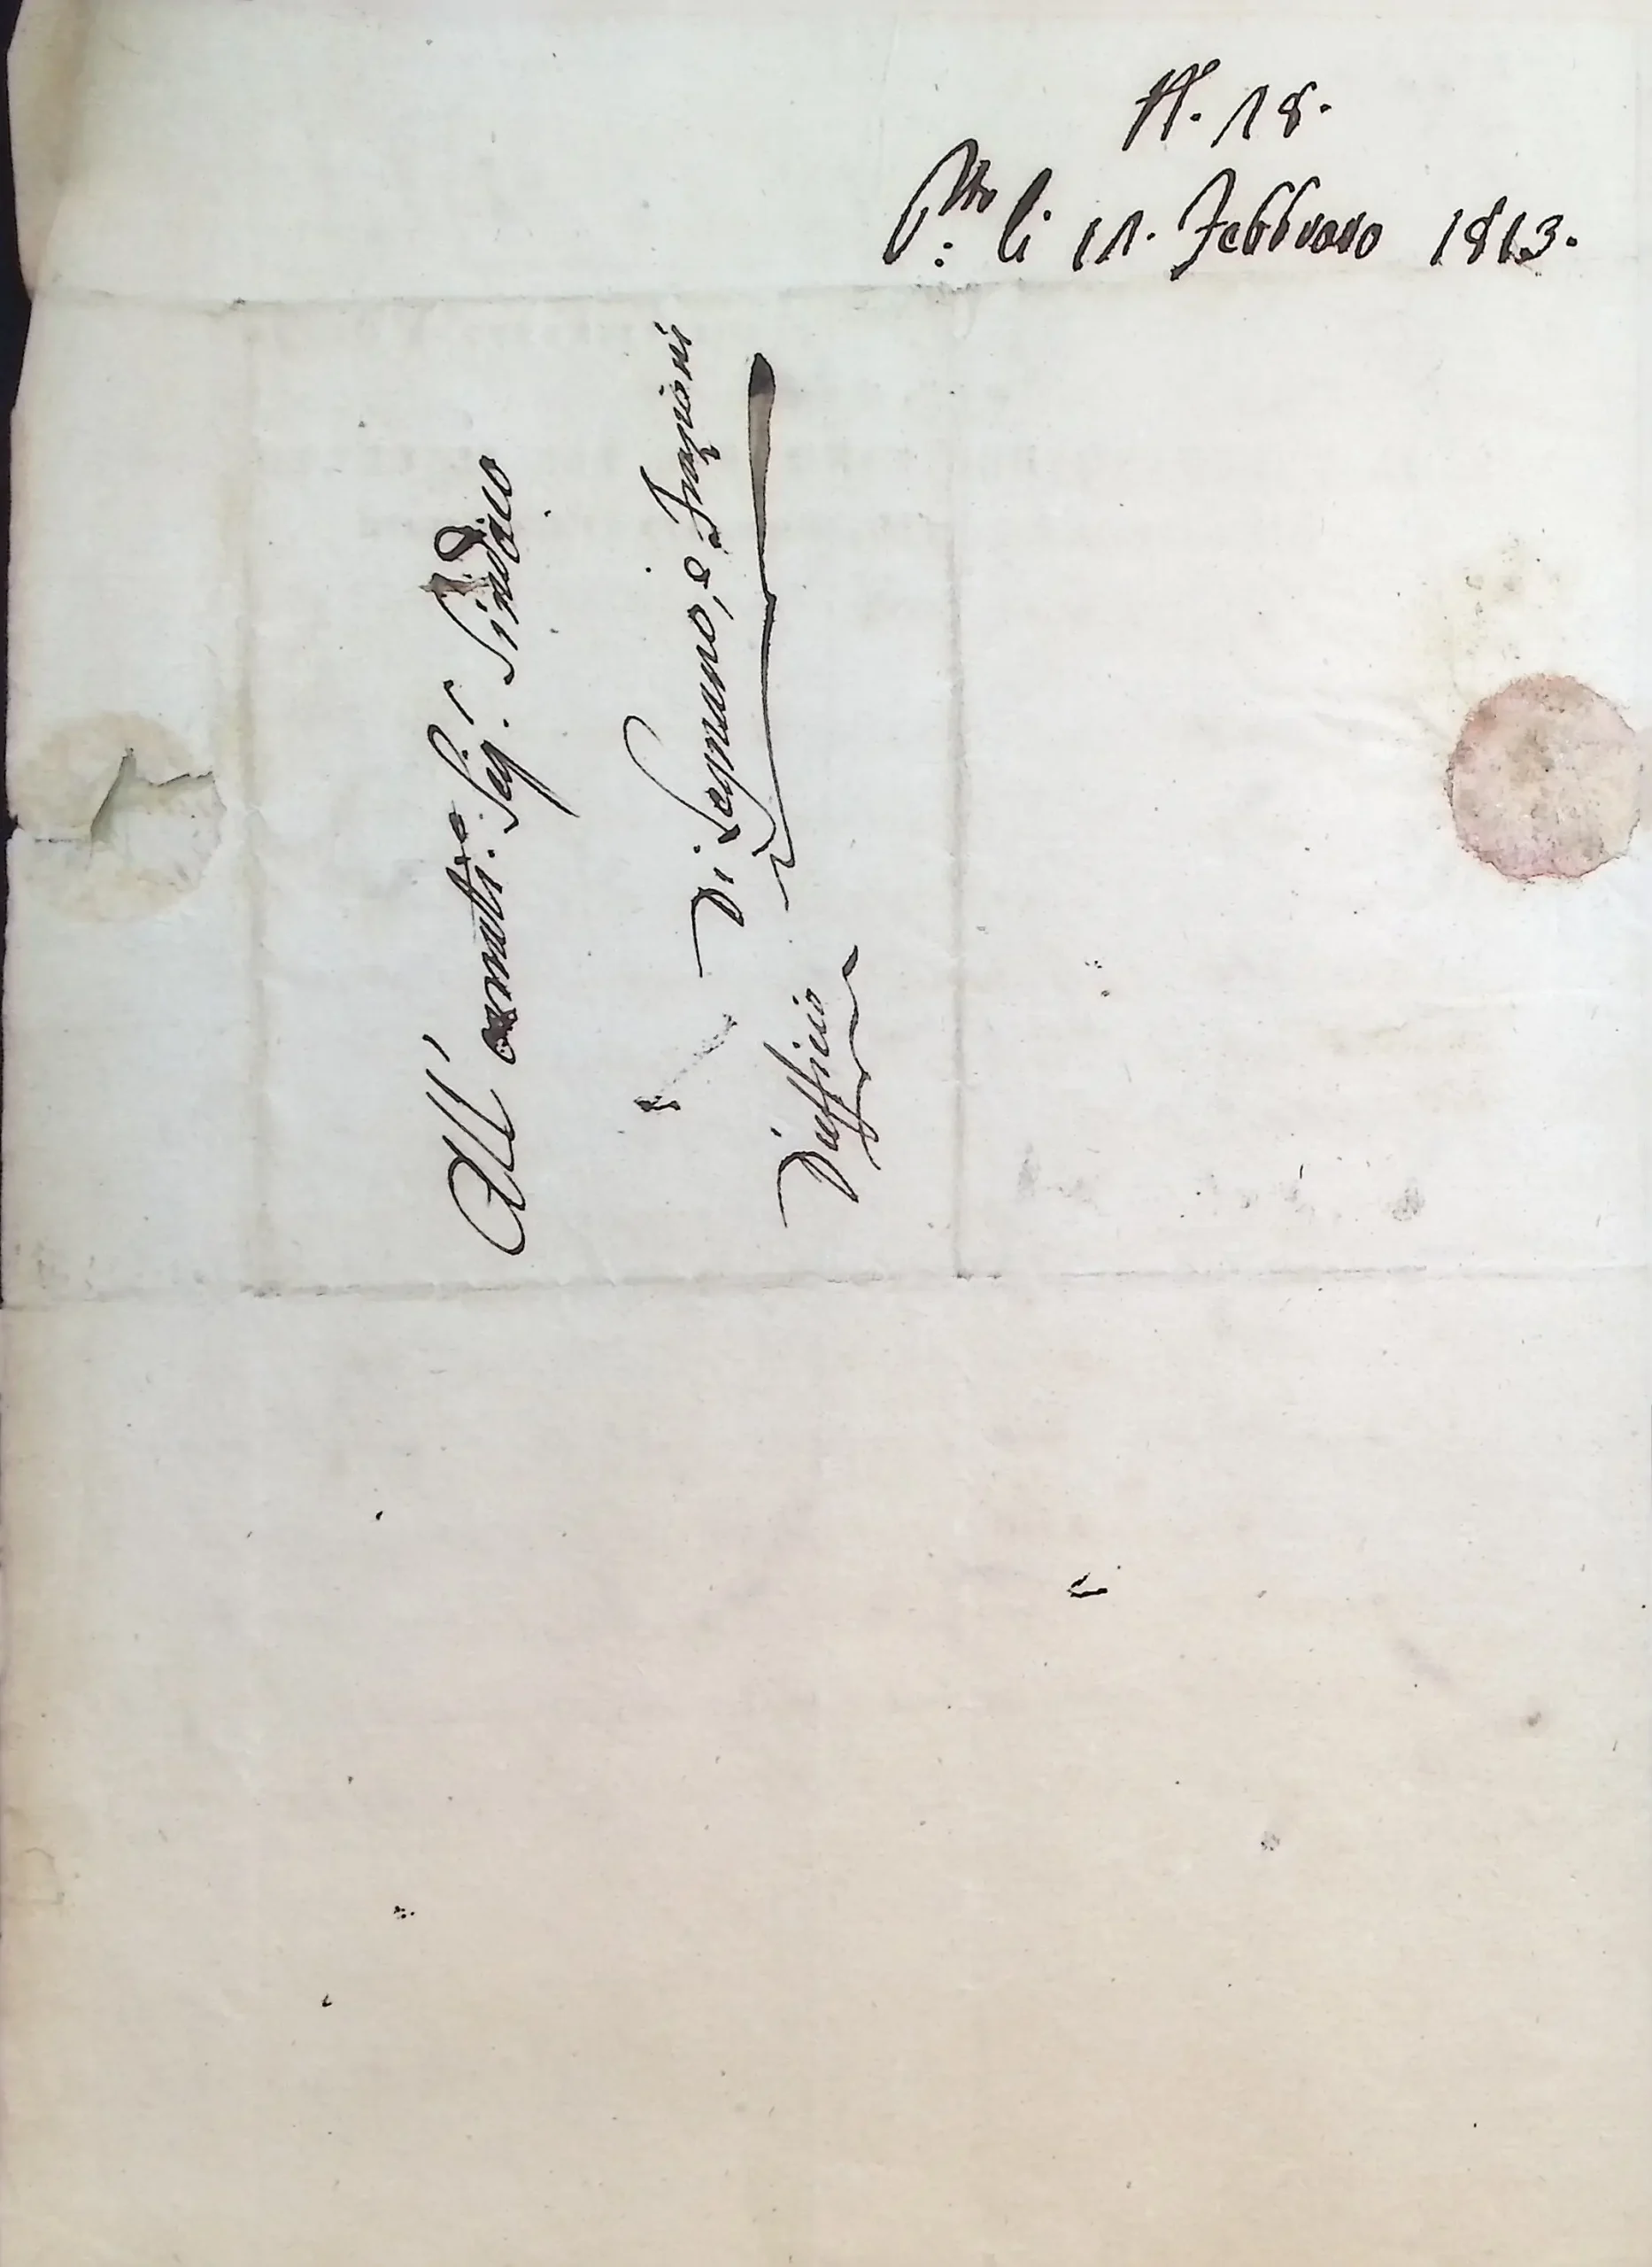 N. 18.
P.to li 11. Febbraro 1813.
All' ornati.o Sig.r Sindico
Di Legnano, e Frazioni
D'ufficio